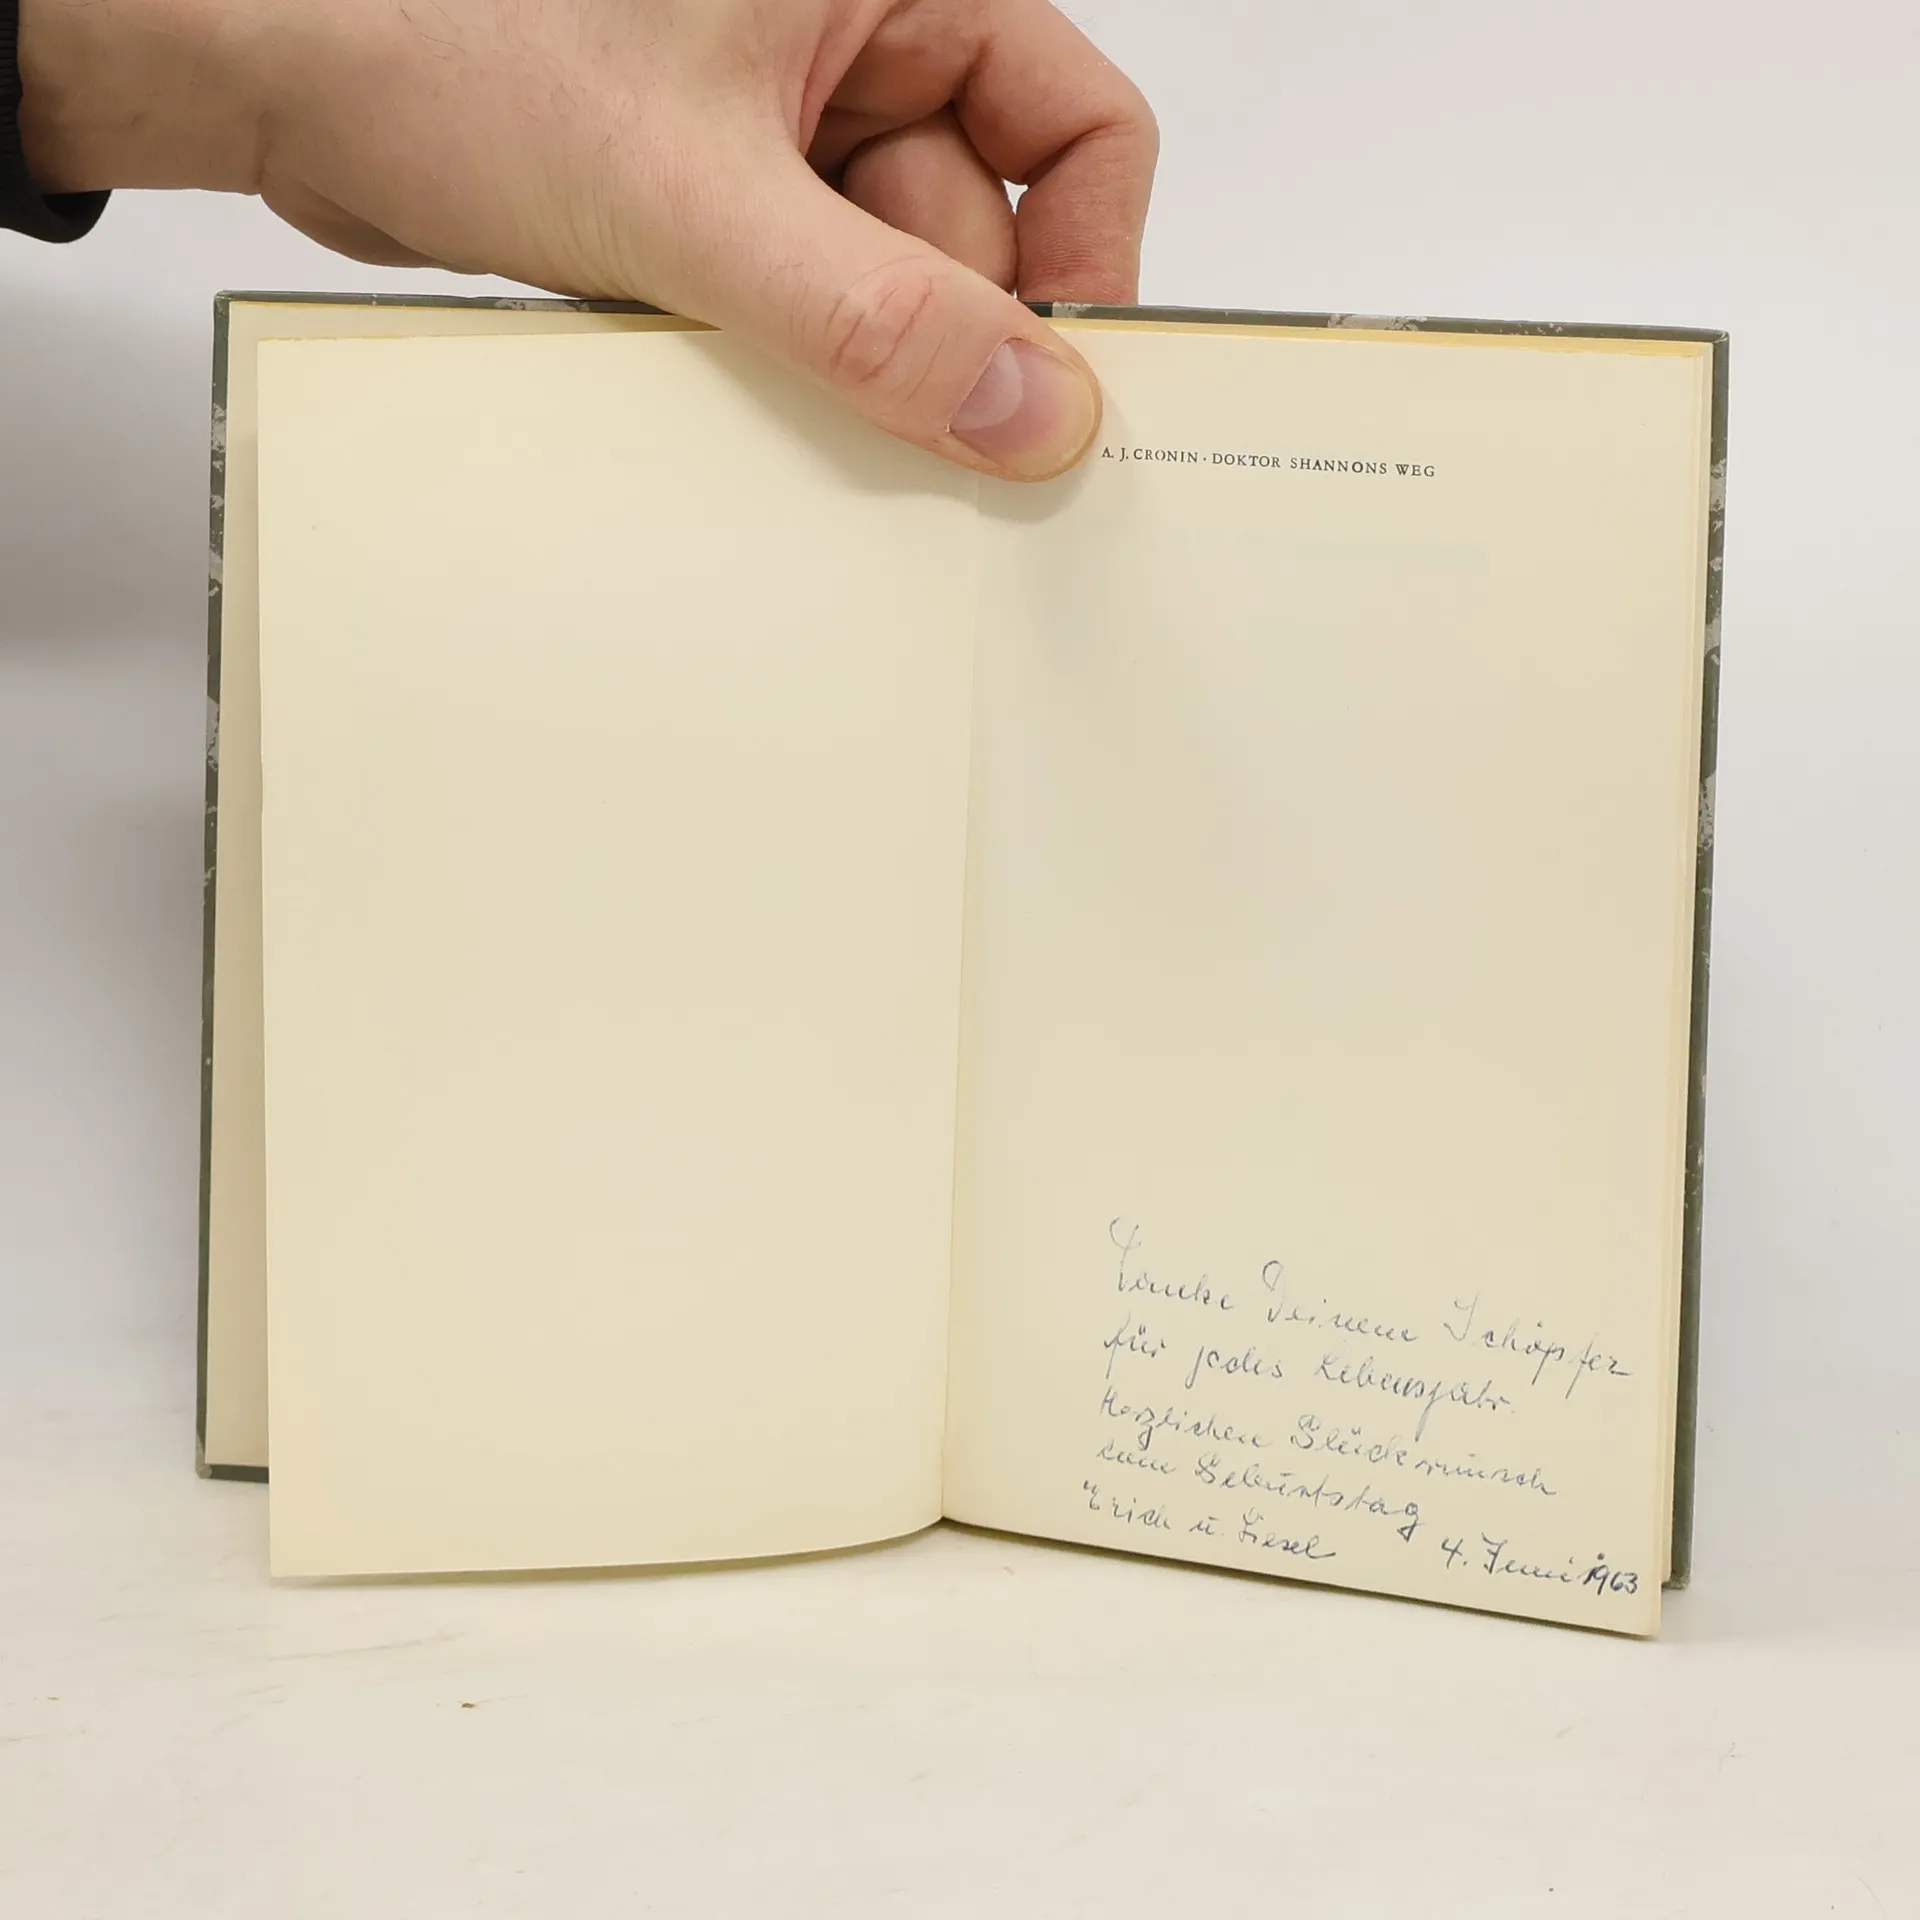 A. J. CRONIN · DOKTOR SHANNONS WEG
Danke Deinem Schöpfer
für jedes Lebensjahr.
Herzlichen Glückwunsch
zum Geburtstag
Erich u. Liesel
4. Juni 1963